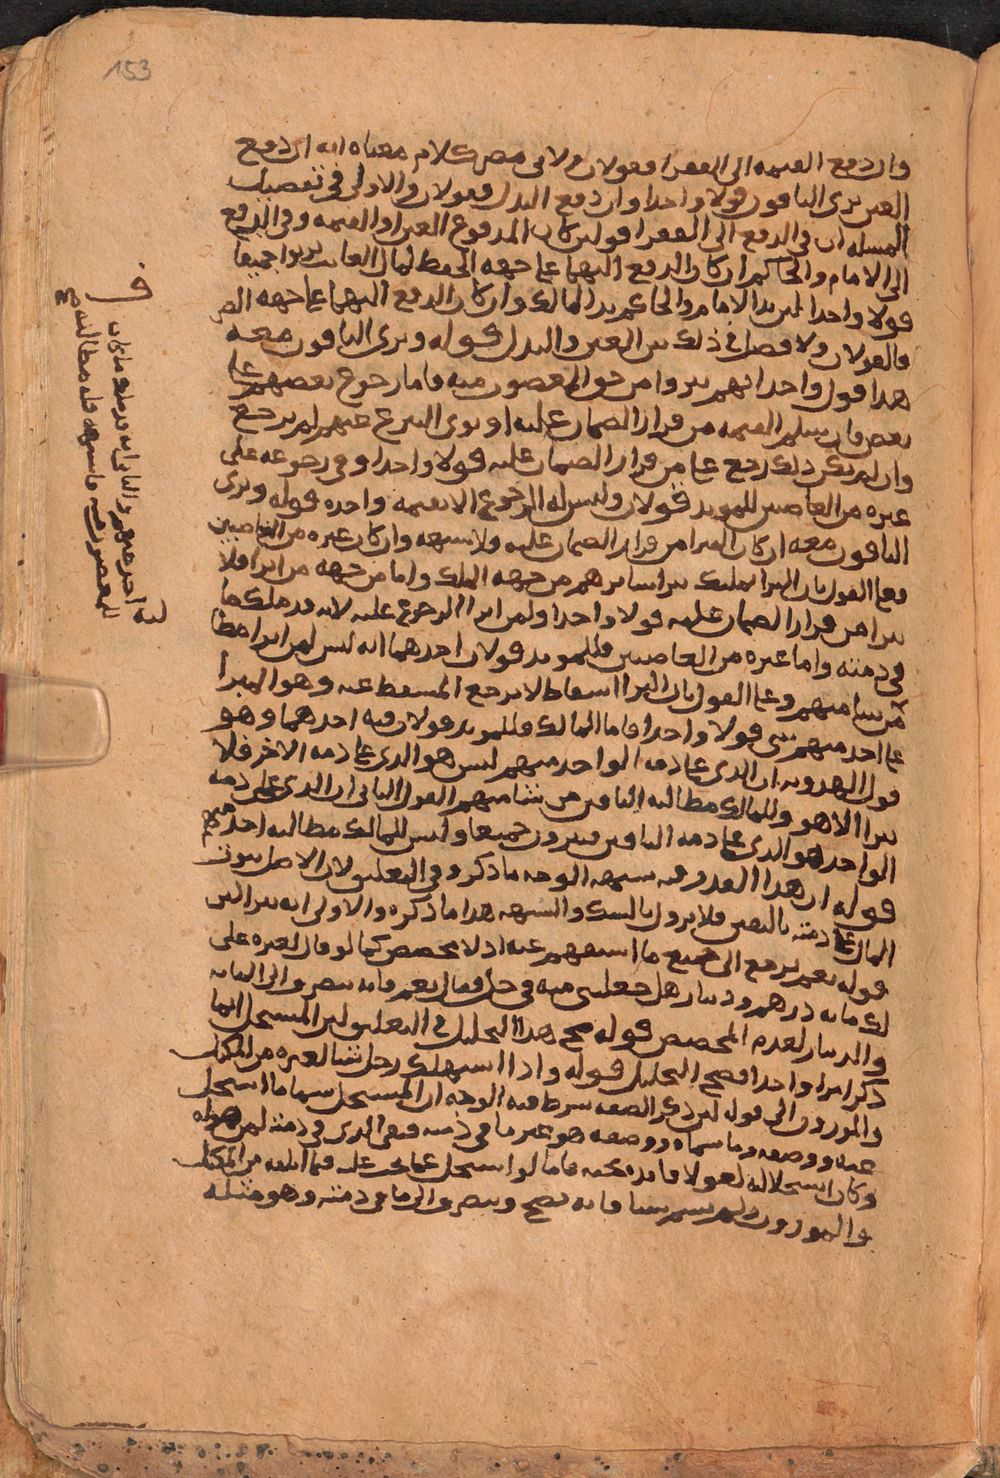 153
وان دفع القيمه الى الفقرا فقولان ولابي مضر كلام معناه انه ان دفع
العين بري الباقون قولا واحدا وان دفع البدل فقولان والاولى في تفصيل
المسله ان في الدفع الى الفقرا قولين كان المدفوع العين او القيمه وفي الدفع
الى الامام والحاكم ان كان الدفع اليهما على جهه الحفظ لمال الغائب بريوا جميعا
قولا واحدا لان يد الامام والحاكم يد المالك وان كان الدفع اليهما على جهه
فالقولان ولا فصل في ذلك بين العين والبدل قوله وبري الباقون معه
هذا قول واحد انهم بروا من حق المغصوب منه فاما رجوع بعضهم على
بعض فان سلم القيمه من قرار الضمان عليه او نوى التبرع عنهم لم يرجع
وان لم يكن ذلك رجع على من قرار الضمان عليه قولا واحدا وفي رجوعه على
غيره من الغاصبين للمويد قولان وليس له الرجوع الا بقيمه واحده قوله وبري
الباقون معه ان كان المبرا من قرار الضمان عليه ولا شبهه وان كان غيره من الغاصبين
فعلى القول بان البرا تمليك برا سايرهم من جهه الملك واما من جهه من ابرا فلا
يبرا من قرار الضمان عليه قولا واحدا ولمن ابرا الرجوع عليه لانه قد ملك ما
في ذمته واما غيره من الغاصبين فللمويد قولان احدهما انه ليس لمن ابرا مطا
من شا منهم وعلى القول بان البرا اسقاط لا يرجع المسقط عنه وهو المبرا
على احد منهم بشي قولا واحدا فاما المالك فللمويد قولان فيه احدهما وهو
قول الهدويه ان الذي على ذمه الواحد منهم ليس هو الذي على ذمه الاخر فلا
يبرا الا هو وللمالك مطالبه الباقين من شا منهم القول الثاني ان الذي على ذمه
الواحد هو الذي على ذمه الباقين فيبرون جميعا وليس للمالك مطالبه احد منهم
قوله ان هذا القدر فيه شبهه الوجه ما ذكره في التعليق لان الاصل ثبوت
المال على ذمته باليقين فلا يزول بالشك والشبهه هذا ما ذكره والاولى انه يبرا لان
قوله نعم يرجع الى جميع ما استفهم عنه اذ لا مخصص كما لو قال لغيره على
لك مايه درهم ودينار هل جعلتني منه في حل فقال نعم فانه ينصرف الى المايه
والدينار لعدم المخصص قوله صح هذا التحليل في التعليق لان المستحل انما
ذكر امرا واحدا فصح التحليل قوله واذا استهلك رجل شيا لغيره من المكيل
والموزون الى قوله لان ذكر الصفه شرط فيه الوجه ان المستحل سما ما استحل
عنه ووصفه وما سماه ووصفه هو غير ما في ذمته فبقي الذي في ذمته لمن
وكان استحلاله لغوا لا فايده تحته فاما لو استحل عما يجب عليه فيما اتلفه من المكيل
والموزون ولم يسم شيا فانه يصح وينصرف الى ما في ذمته وهو مثله
لبه احد غيرهم والثاني انه قد ملك ما كان
للمغصوب منه فاشبهه فله مطالبته صح